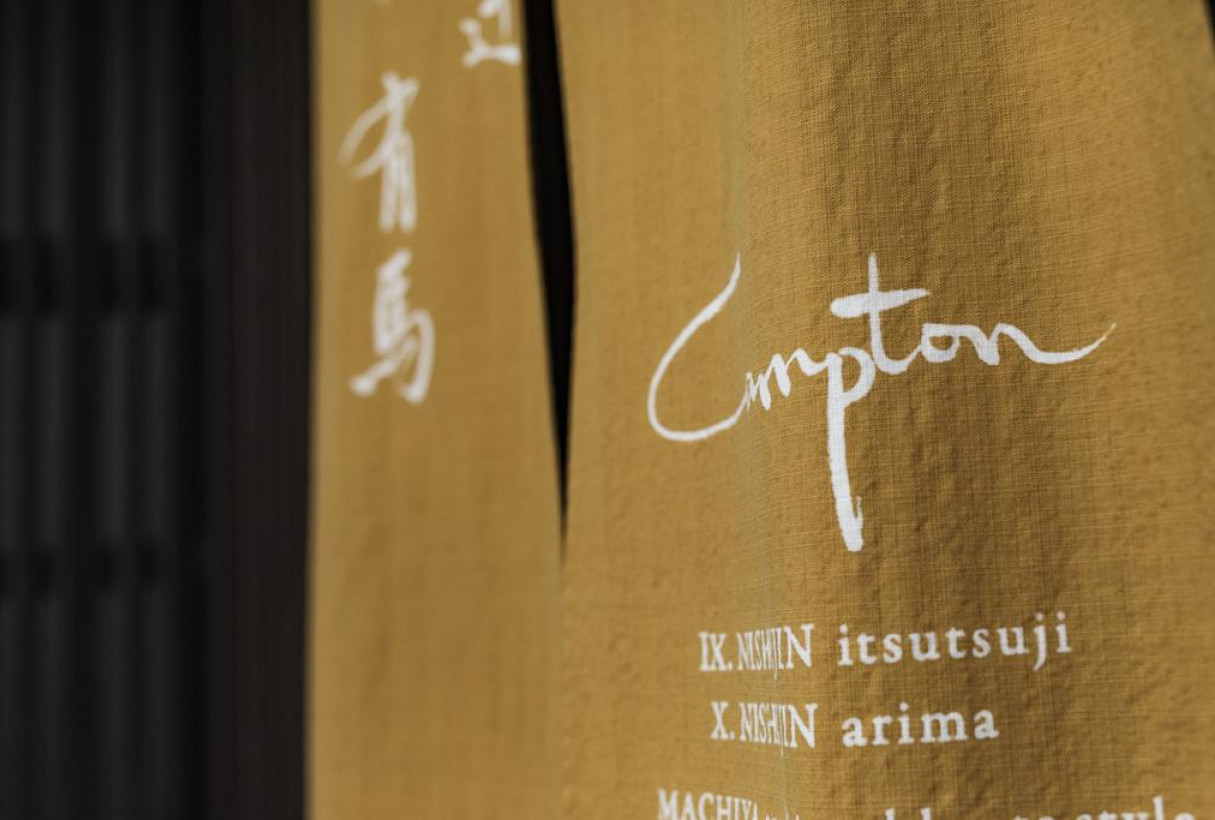 辻
有馬
Campton
IX. NISHIJIN itsutsuji
X. NISHIJIN arima
MACHIYA style